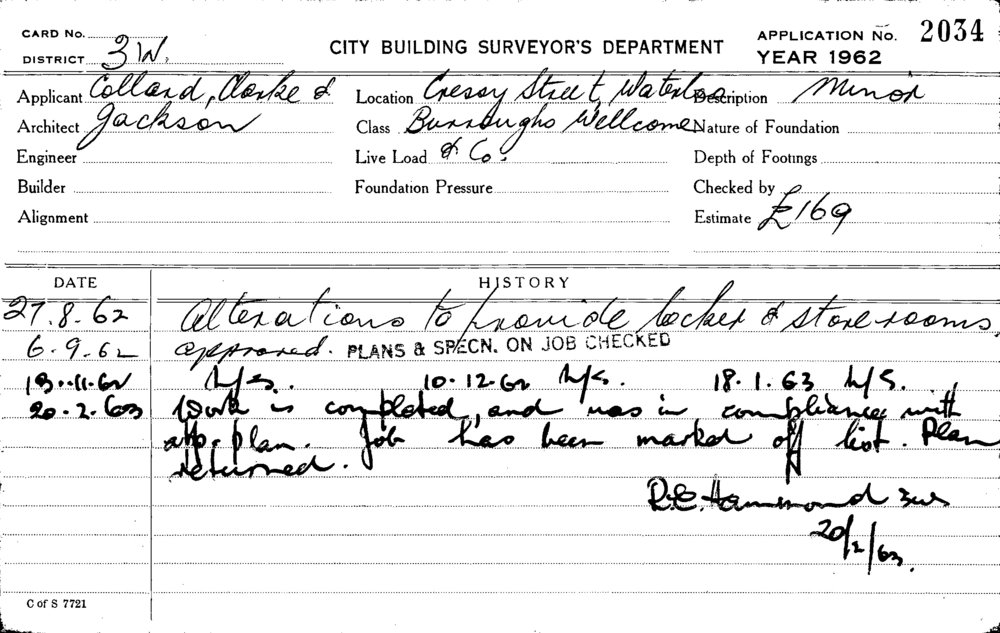 CARD No. APPLICATION No. 2034
DISTRICT 3W. CITY BUILDING SURVEYOR'S DEPARTMENT YEAR 1962
Applicant Collard, Clarke & Location Cressy Street, Waterloo Description Minor
Architect Jackson Class Burroughs Wellcome Nature of Foundation
Engineer Live Load & Co. Depth of Footings
Builder Foundation Pressure Checked by
Alignment Estimate £169
DATE HISTORY
27.8.62 Alterations to provide locker & store rooms
6.9.62 approved. PLANS & SPECN. ON JOB CHECKED
13.11.62 h/s. 10.12.62 h/s. 18.1.63 h/s.
20.2.63 Work is completed, and was in compliance with
app. plan. Job has been marked off list. Plan
returned.
R.E. Hammond 3W
20/2/63.
C of S 7721